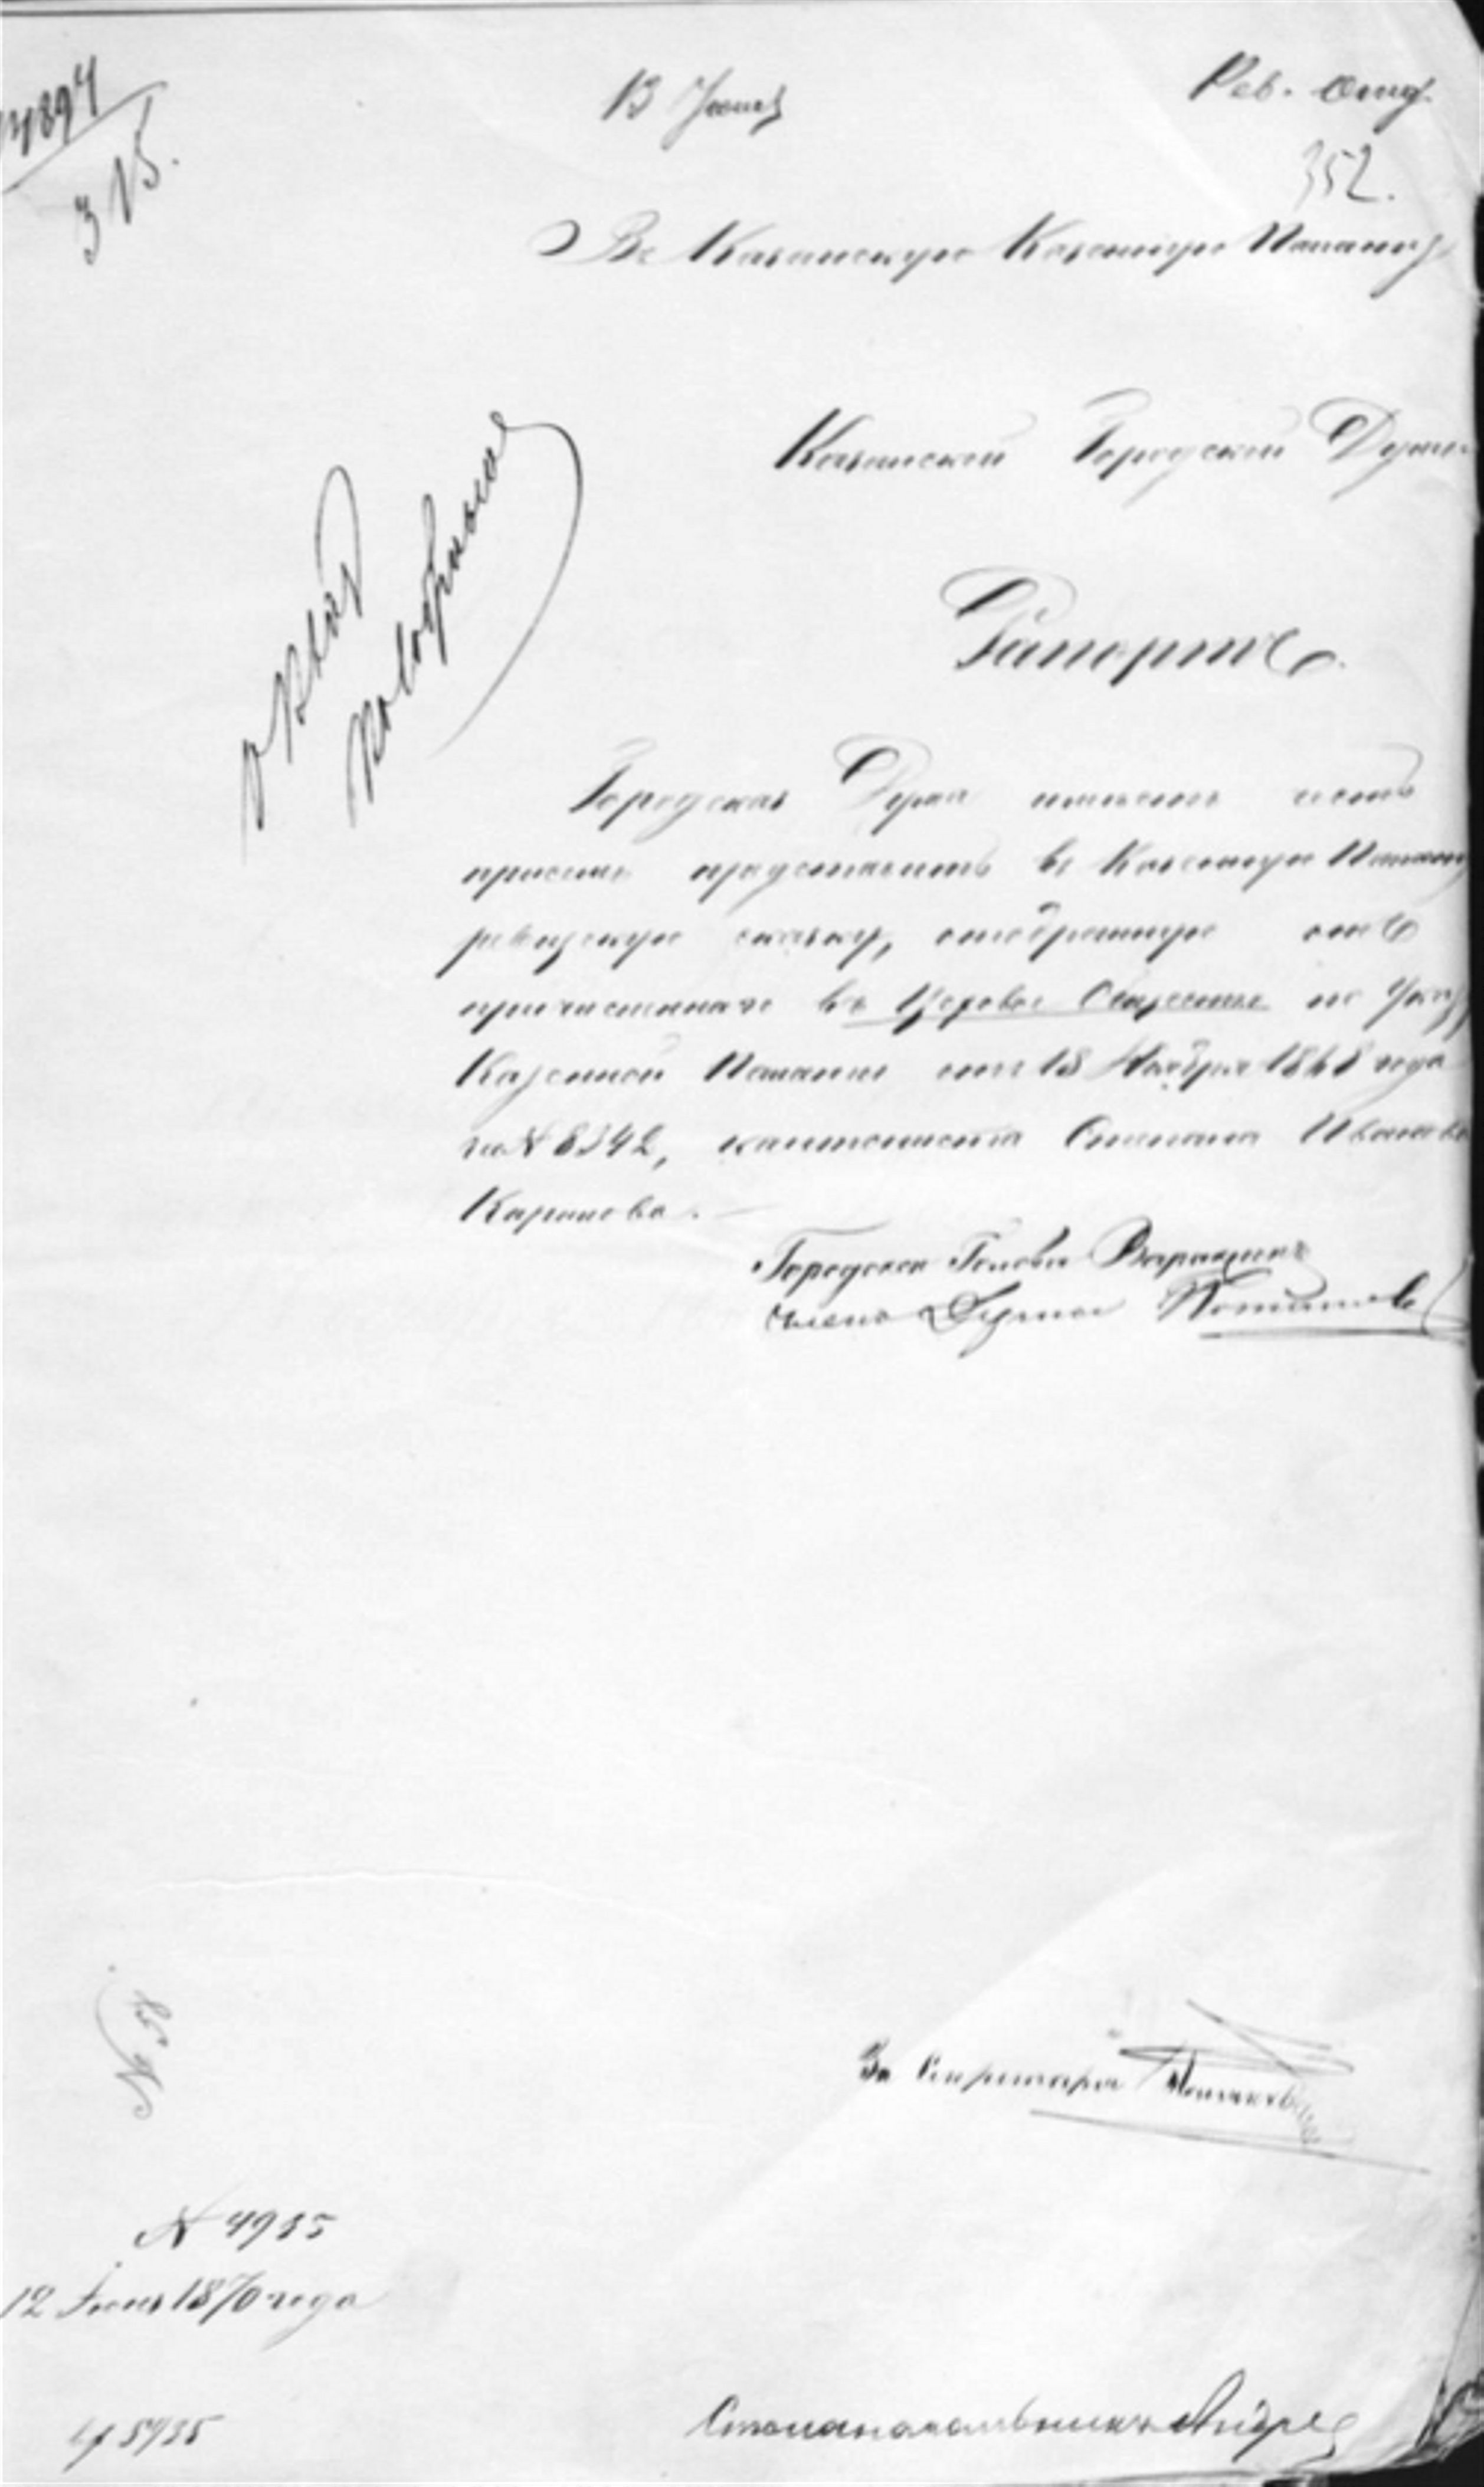 4894
315.
13 Июня
Рев. Отд.
352.
Въ Казанскую Казенную Палату
Казанской Городской Думы
Рапортъ.
Городская Дума имѣетъ честь
при семъ представить въ Казенную Палату
ревизскую сказку, отобранную отъ
причисленнаго въ Цеховое Общество по Указу
Казенной Палаты отъ 18 Ноября 1868 года
за № 8342, кантониста Степана Иванова
Карпова.
Городской Голова
Членъ Думы
№ 58
За Секретаря
№ 4985
12 Июня 1870 года
5935
Столоначальникъ